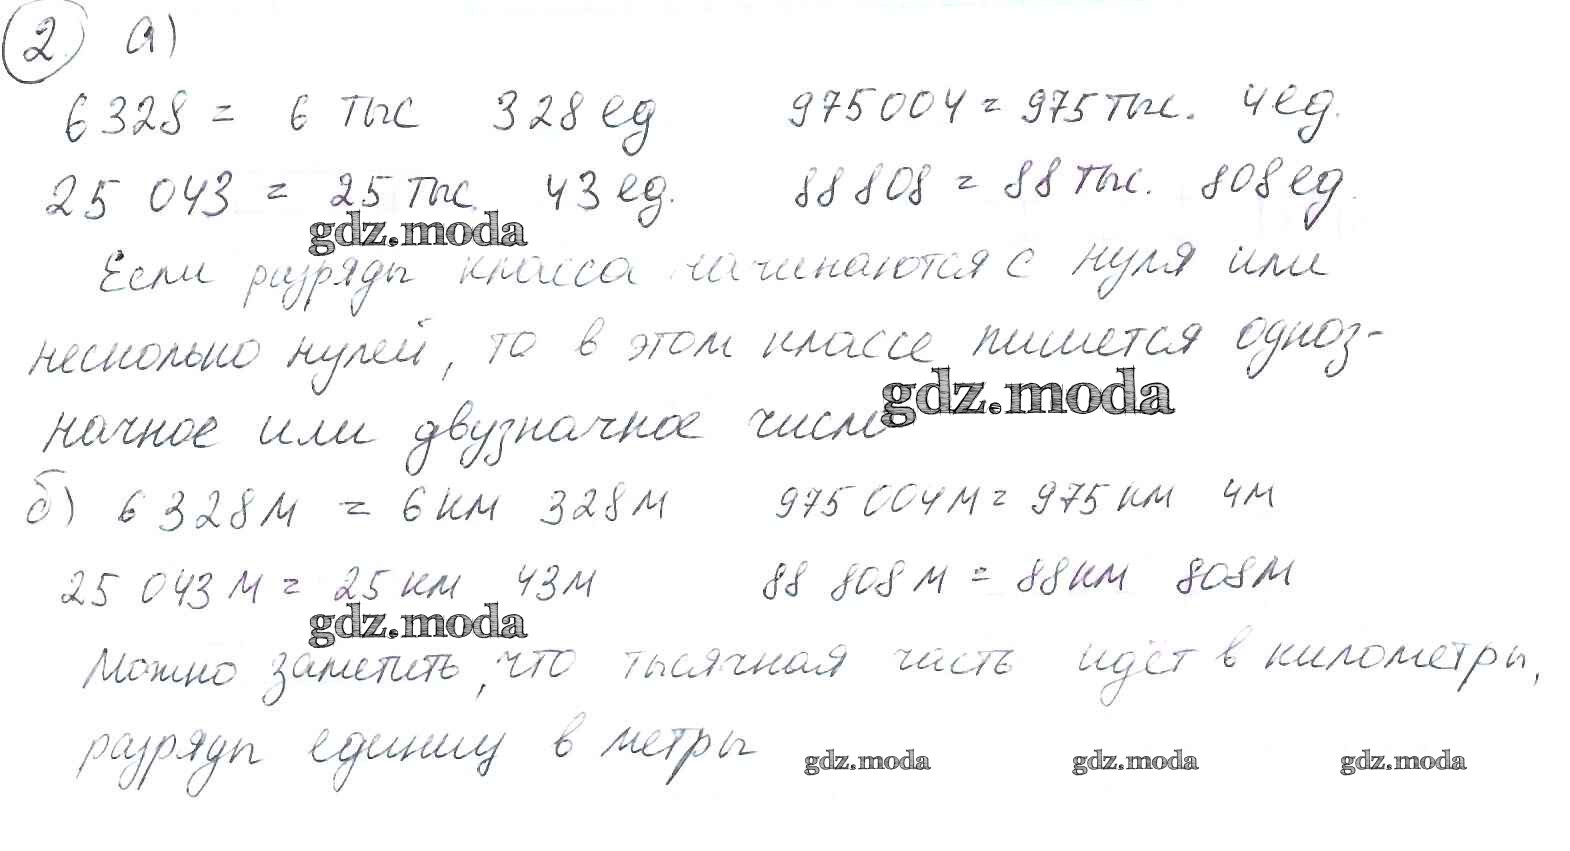 2 а)
6 328 = 6 тыс 328 ед 975 004 = 975 тыс. 4 ед.
25 043 = 25 тыс. 43 ед. 88 808 = 88 тыс. 808 ед.
gdz.moda
Если разряды класса начинаются с нуля или
несколько нулей, то в этом классе пишется одноз-
gdz.moda
начное или двузначное число
б) 6 328 м = 6 км 328 м 975 004 м = 975 км 4 м
25 043 м = 25 км 43 м 88 808 м = 88 км 808 м
gdz.moda
Можно заметить, что тысячная часть идёт в километры,
разряды единиц в метры
gdz.moda gdz.moda gdz.moda